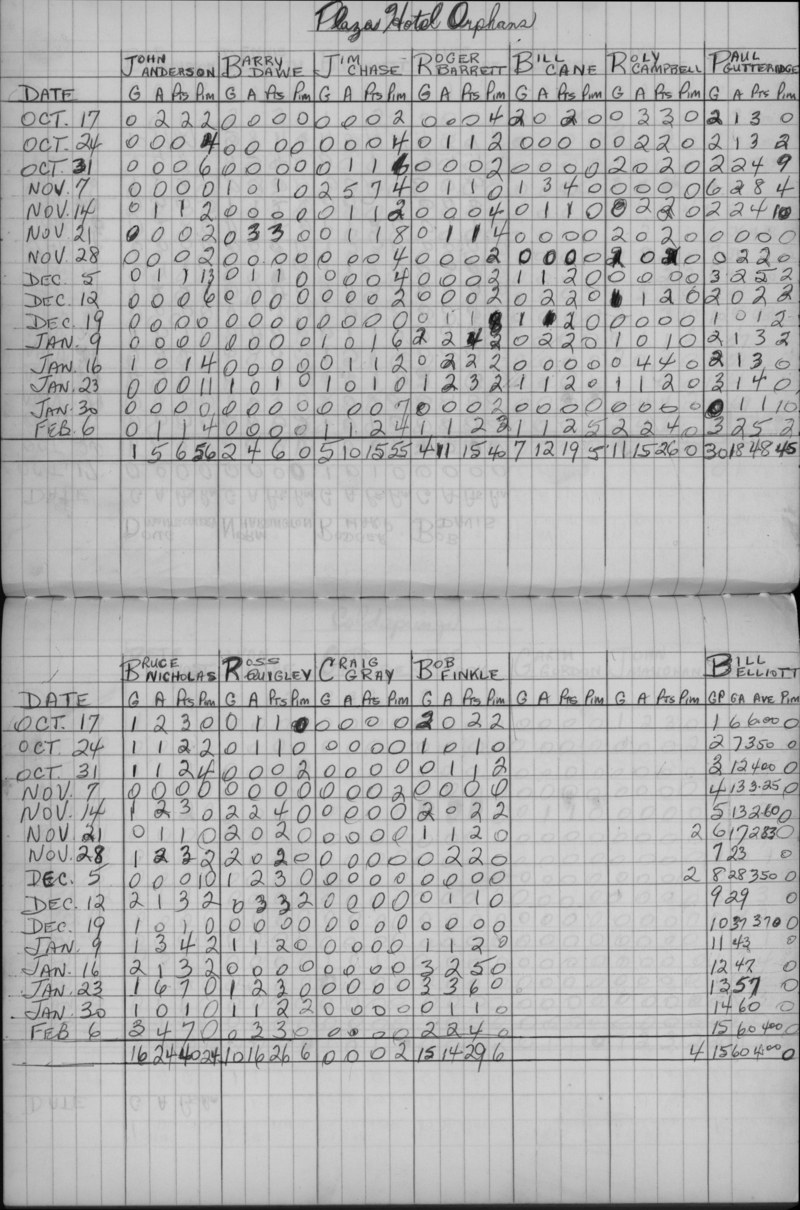 Plaza Hotel Orphans
JOHN ANDERSON BARRY DAWE JIM CHASE ROGER BARRETT BILL CANE ROLY CAMPBELL PAUL GUTTERIDGE
DATE G A Pts Pim G A Pts Pim G A Pts Pim G A Pts Pim G A Pts Pim G A Pts Pim G A Pts Pim
OCT. 17 0 2 2 2 0 0 0 0 0 0 0 2 0 0 0 4 2 0 2 0 0 3 3 0 2 1 3 0
OCT. 24 0 0 0 4 0 0 0 0 0 0 0 4 0 1 1 2 0 0 0 0 0 2 2 0 2 1 3 2
OCT. 31 0 0 0 6 0 0 0 0 0 1 1 6 0 0 0 2 0 0 0 0 2 0 2 0 2 2 4 9
NOV. 7 0 0 0 0 1 0 1 0 2 5 7 4 0 1 1 0 1 3 4 0 0 0 0 0 6 2 8 4
NOV. 14 0 1 1 2 0 0 0 0 0 1 1 2 0 0 0 4 0 1 1 0 0 2 2 0 2 2 4 10
NOV 21 0 0 0 2 0 3 3 0 0 1 1 8 0 1 1 4 0 0 0 0 2 0 2 0 0 0 0 0
NOV. 28 0 0 0 2 0 0 0 0 0 0 0 4 0 0 0 2 0 0 0 0 2 0 2 0 0 2 2 0
DEC. 5 0 1 1 13 0 1 1 0 0 0 0 4 0 0 0 2 1 1 2 0 0 0 0 0 3 2 5 2
DEC. 12 0 0 0 6 0 0 0 0 0 0 0 2 0 0 0 2 0 2 2 0 1 2 0 2 0 2 2
DEC. 19 0 0 0 0 0 0 0 0 0 0 0 0 0 1 1 8 1 1 2 0 0 0 0 0 1 0 1 2
JAN. 9 0 0 0 0 0 0 0 0 1 0 1 6 2 2 4 2 0 2 2 0 1 0 1 0 2 1 3 2
JAN. 16 1 0 1 4 0 0 0 0 0 1 1 2 0 2 2 2 0 0 0 0 0 4 4 0 2 1 3 0
JAN. 23 0 0 0 11 1 0 1 0 1 0 1 0 1 2 3 2 1 1 2 0 1 1 2 0 3 1 4 0
JAN. 30 0 0 0 0 0 0 0 0 0 0 0 7 0 0 0 2 0 0 0 0 0 0 0 0 0 1 1 10
FEB. 6 0 1 1 4 0 0 0 0 1 1 2 4 1 1 2 2 1 1 2 5 2 2 4 0 3 2 5 2
1 5 6 56 2 4 6 0 5 10 15 55 4 11 15 40 7 12 19 5 11 15 26 0 30 18 48 45
BRUCE NICHOLAS ROSS QUIGLEY CRAIG GRAY BOB FINKLE BILL ELLIOTT
DATE G A Pts Pim G A Pts Pim G A Pts Pim G A Pts Pim G A Pts Pim G A Pts Pim GP GA AVE Pim
OCT. 17 1 2 3 0 0 1 1 0 0 0 0 0 2 0 2 2 1 6 6.00 0
OCT. 24 1 1 2 2 0 1 1 0 0 0 0 0 1 0 1 0 2 7 3.50 0
OCT. 31 1 1 2 4 0 0 0 2 0 0 0 0 0 1 1 2 3 12 4.00 0
NOV. 7 0 0 0 0 0 0 0 0 0 0 0 2 0 0 0 0 4 13 3.25 0
NOV. 14 1 2 3 0 2 2 4 0 0 0 0 0 2 0 2 2 5 13 2.60 0
NOV. 21 0 1 1 0 2 0 2 0 0 0 0 0 1 1 2 0 2 6 17 2.83 0
NOV. 28 1 2 3 2 2 0 2 0 0 0 0 0 0 2 2 0 7 23 0
DEC. 5 0 0 0 10 1 2 3 0 0 0 0 0 0 0 0 0 2 8 28 3.50 0
DEC. 12 2 1 3 2 0 3 3 2 0 0 0 0 0 1 1 0 9 29 0
DEC. 19 1 0 1 0 0 0 0 0 0 0 0 0 0 0 0 0 10 37 3.70 0
JAN. 9 1 3 4 2 1 1 2 0 0 0 0 0 1 1 2 0 11 43 0
JAN. 16 2 1 3 2 0 0 0 0 0 0 0 0 3 2 5 0 12 47 0
JAN. 23 1 6 7 0 1 2 3 0 0 0 0 0 3 3 6 0 13 57 0
JAN. 30 1 0 1 0 1 1 2 2 0 0 0 0 0 1 1 0 14 60 0
FEB 6 3 4 7 0 0 3 3 0 0 0 0 0 2 2 4 0 15 60 4.00 0
16 24 40 24 10 16 26 6 0 0 0 2 15 14 29 6 4 15 60 4.00 0